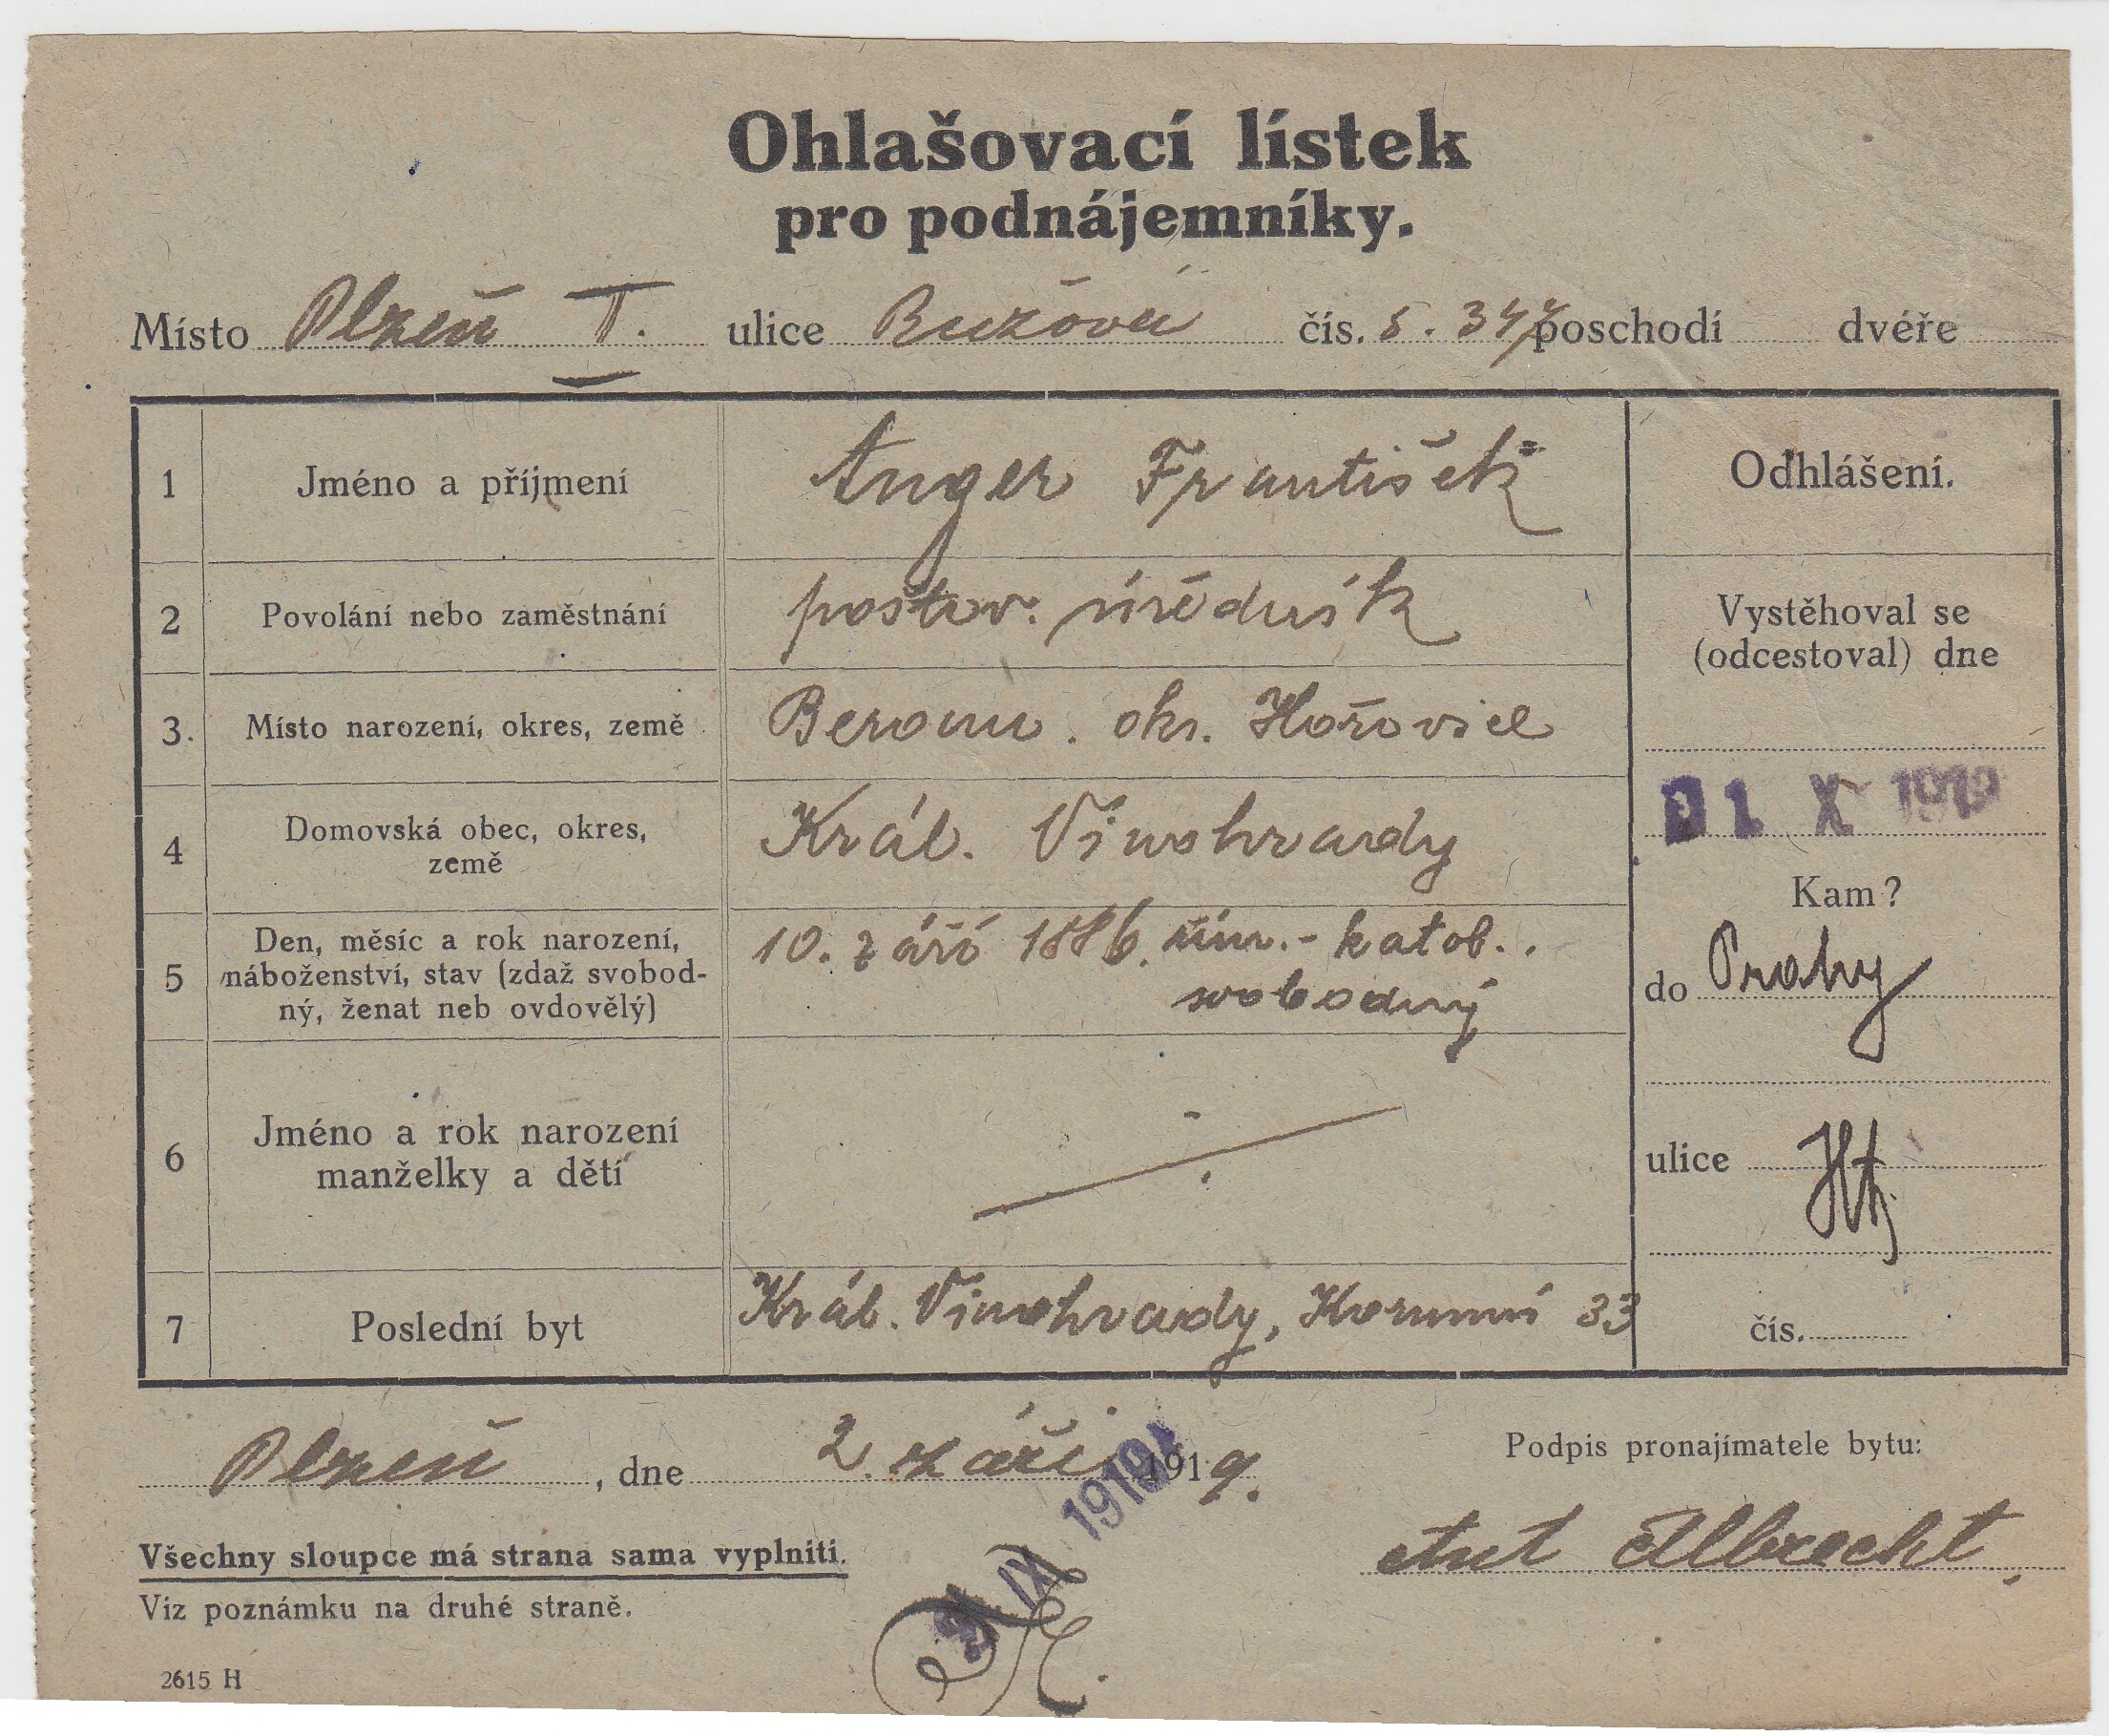 Ohlašovací lístek
pro podnájemníky.
Místo Plzeň I. ulice Růžová čís. 5. poschodí dvéře
1 Jméno a příjmení Anger František
2 Povolání nebo zaměstnání poštov. úředník
3. Místo narození, okres, země Beroun. okr. Hořovice
4 Domovská obec, okres,
země Král. Vinohrady
5 Den, měsíc a rok narození,
náboženství, stav (zdaž svobod-
ný, ženat neb ovdovělý) 10. září 1886. řím.-katol.
svobodný
6 Jméno a rok narození
manželky a dětí
7 Poslední byt Král. Vinohrady, Korunní 33
Odhlášení.
Vystěhoval se
(odcestoval) dne
X 1919
Kam?
do Prahy
ulice
čís.
Plzeň, dne 2. září 1919.
IX 1919
Podpis pronajímatele bytu:
Ant Albrecht
Všechny sloupce má strana sama vyplniti.
Viz poznámku na druhé straně.
2615 H